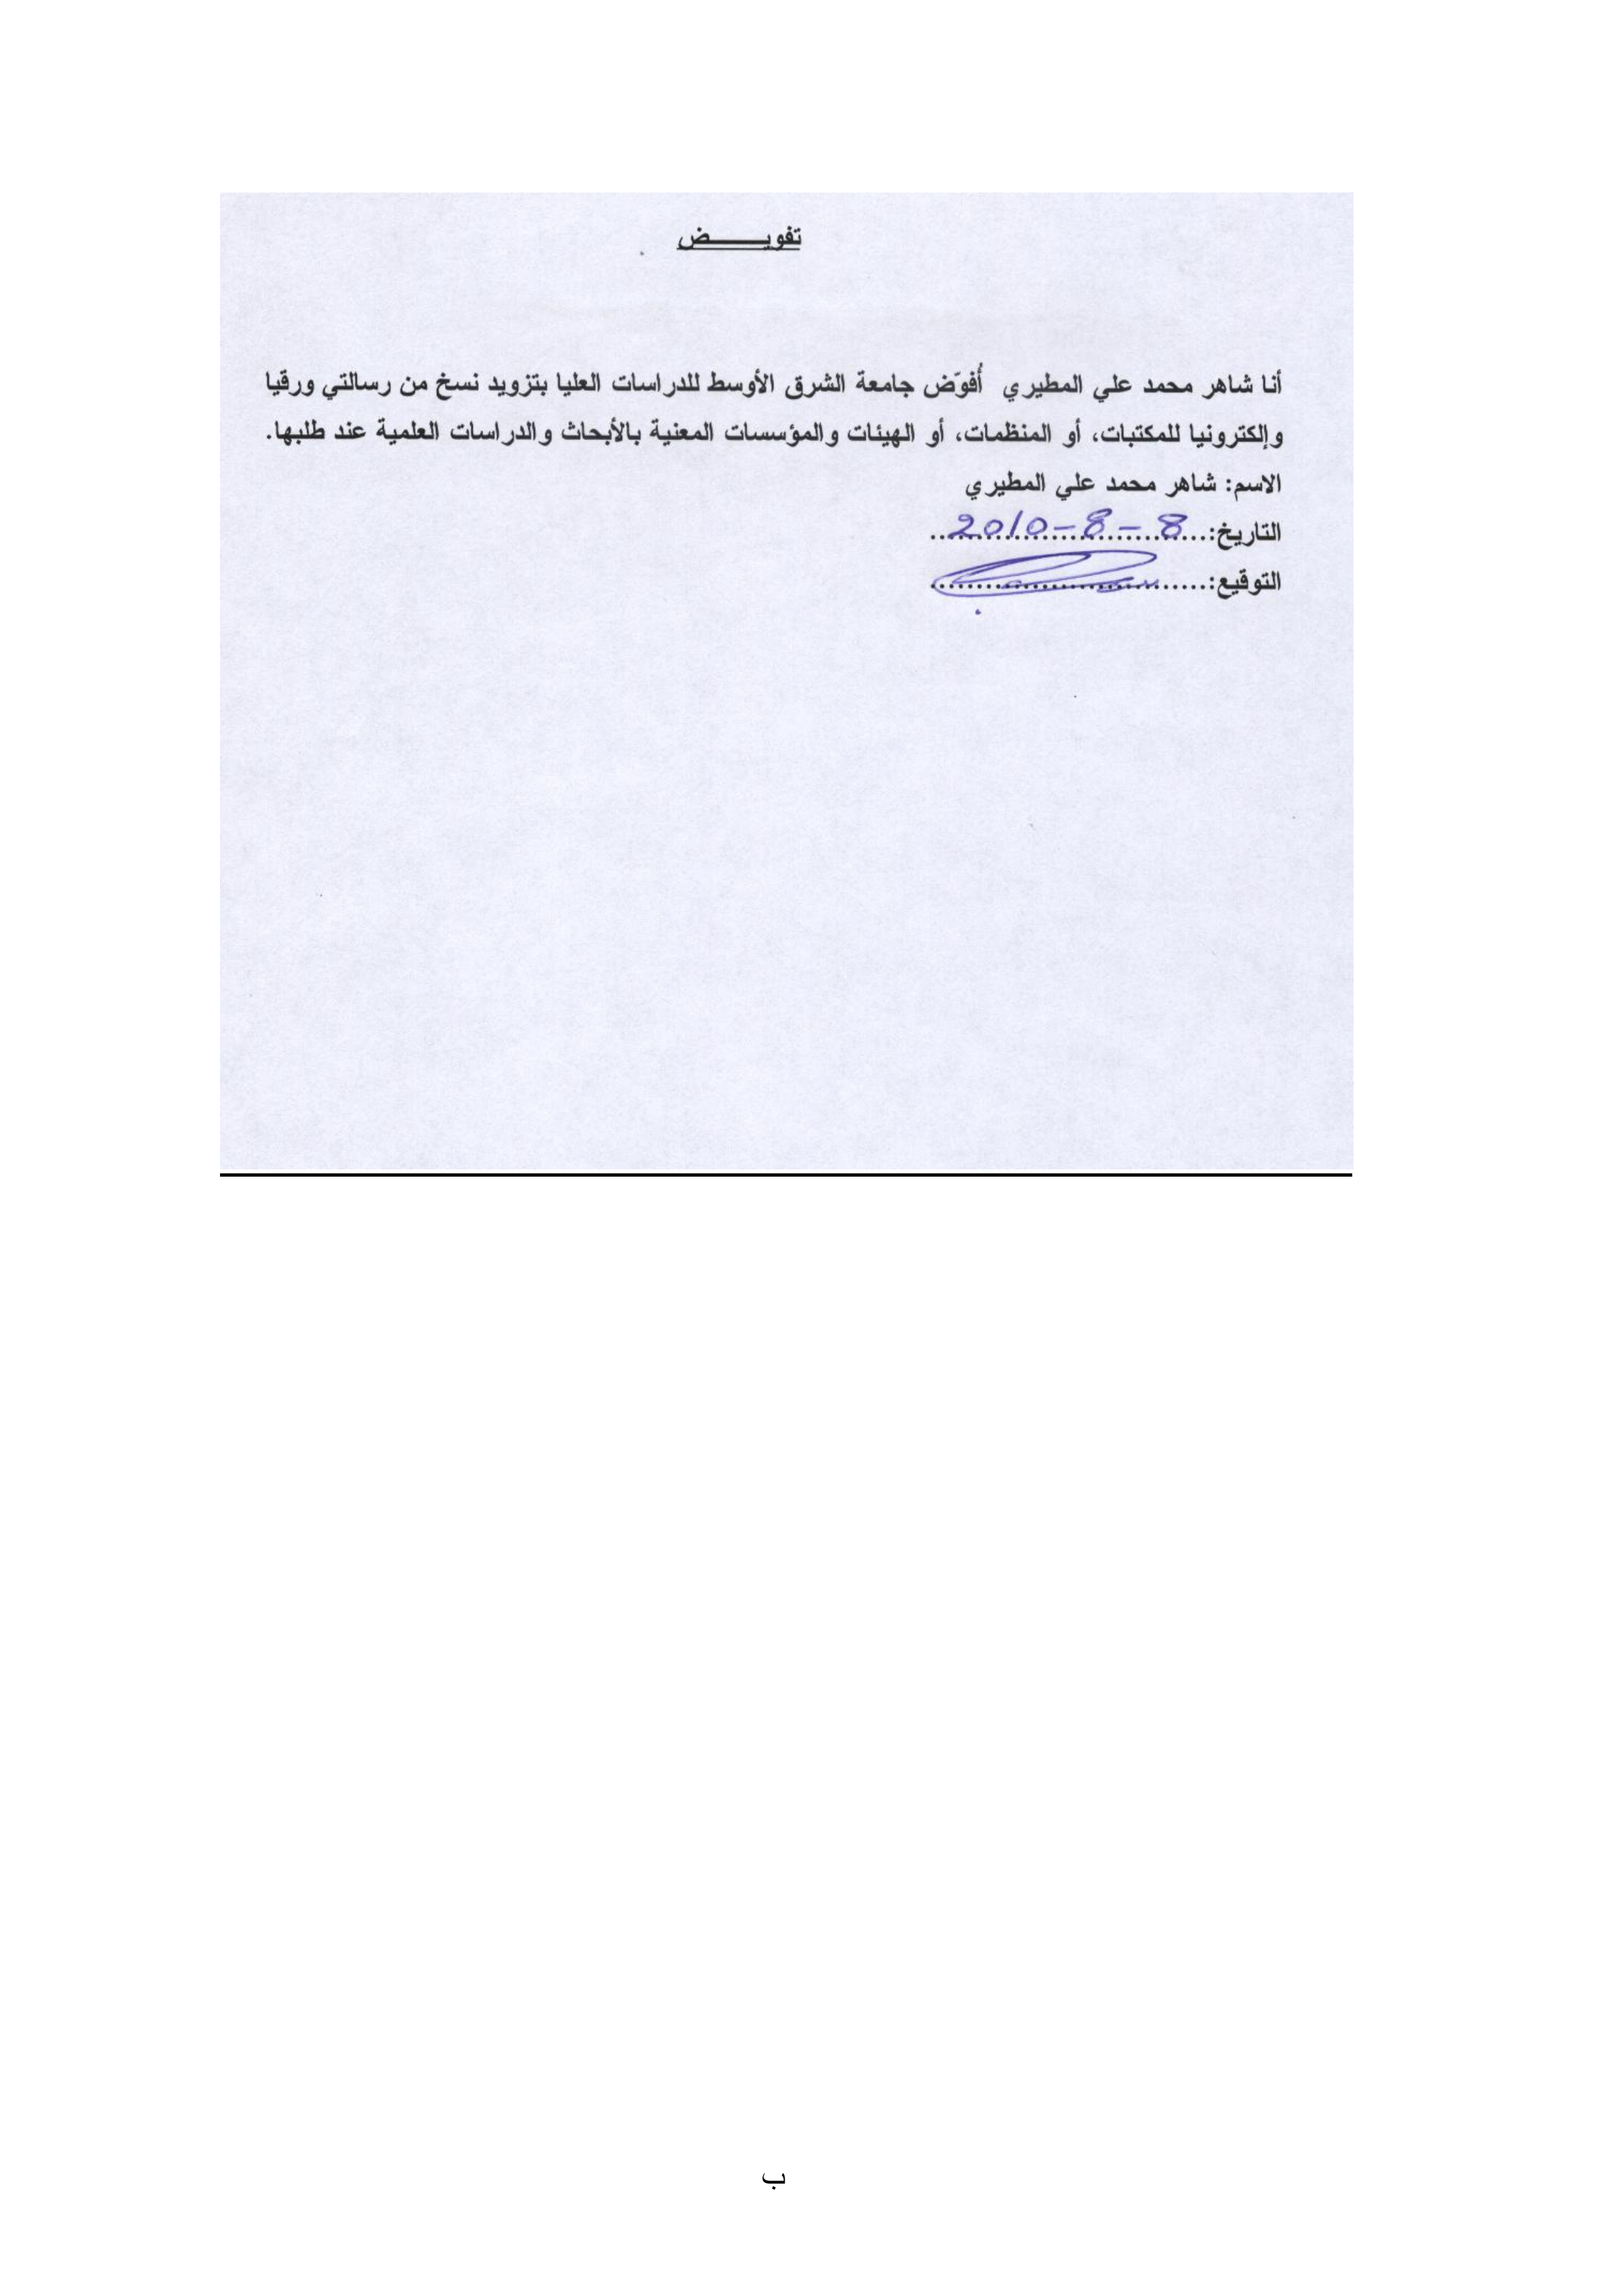 تفويـــــــض
أنا شاهر محمد علي المطيري أُفوّض جامعة الشرق الأوسط للدراسات العليا بتزويد نسخ من رسالتي ورقيا
وإلكترونيا للمكتبات، أو المنظمات، أو الهيئات والمؤسسات المعنية بالأبحاث والدراسات العلمية عند طلبها.
الاسم: شاهر محمد علي المطيري
التاريخ: 8-8-2010
التوقيع:
ب